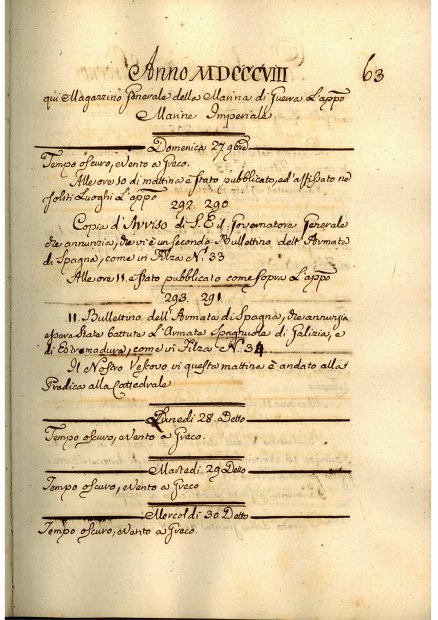 Anno MDCCCVIII 63
qui Magazzino Generale della Marina di Guerra L'appo
Marine Imperiale
Domenica 27 9bre
Tempo oscuro, e Vento a Greco.
Alle ore 10 di mattina è stato pubblicato, ed affissato ne
soliti Luoghi L'appo
292. 290
Copia d'Avviso di S. E. il Governatore Generale
che annunzia, che vi è un secondo Bullettino dell'Armata
di Spagna, come in Filza N.° 33
Alle ore 11. è stato pubblicato come sopra L'appo
293. 291
II. Bullettino dell'Armata di Spagna, che annunzia
essere State battute L'Armate Spagnuole di Galizia, e
di Estremadura, come in Filza N.° 34
Il Nostro Vescovo in questa mattina è andato alla
Predica alla Cattedrale
Lunedi 28. Detto
Tempo oscuro, e Vento a Greco.
Martedi 29 Detto
Tempo oscuro, e Vento a Greco
Mercoldi 30 Detto
Tempo oscuro, e Vento a Greco.